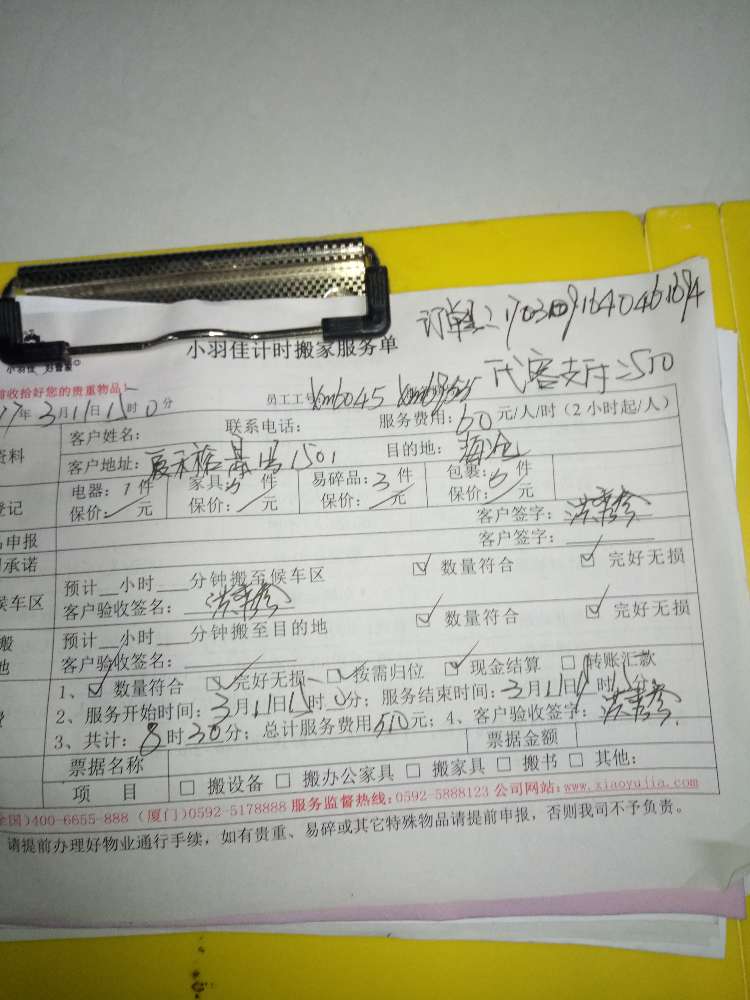 订单号:
小羽佳 好管家
小羽佳计时搬家服务单
代客支付:510
前收拾好您的贵重物品!
17年3月11日15时0分 员工工号 xm6045
客户姓名: 联系电话: 服务费用:60元/人/时(2小时起/人)
资料
客户地址: 1501 目的地:海沧
电器:1件 家具:5件 易碎品:3件 包裹:5件
登记
保价: 元 保价: 元 保价: 元 保价: 元
客户签字:
品申报 客户签字:
承诺
预计 小时 分钟搬至候车区 ☑ 数量符合 ☑ 完好无损
候车区
客户验收签名:
搬 预计 小时 分钟搬至目的地 ☑ 数量符合 ☑ 完好无损
地 客户验收签名:
1、☑ 数量符合 ☑ 完好无损 ☑ 按需归位 ☑ 现金结算 □ 转账汇款
2、服务开始时间:3月11日15时0分;服务结束时间:3月11日 时 分;
3、共计:8时30分;总计服务费用510元;4、客户验收签字:
票据名称 票据金额
项 目 □ 搬设备 □ 搬办公家具 □ 搬家具 □ 搬书 □ 其他:
全国)400-6655-888 (厦门)0592-5178888 服务监督热线:0592-5888123 公司网站:www.xiaoyujia.com
请提前办理好物业通行手续,如有贵重、易碎或其它特殊物品请提前申报,否则我司不予负责。